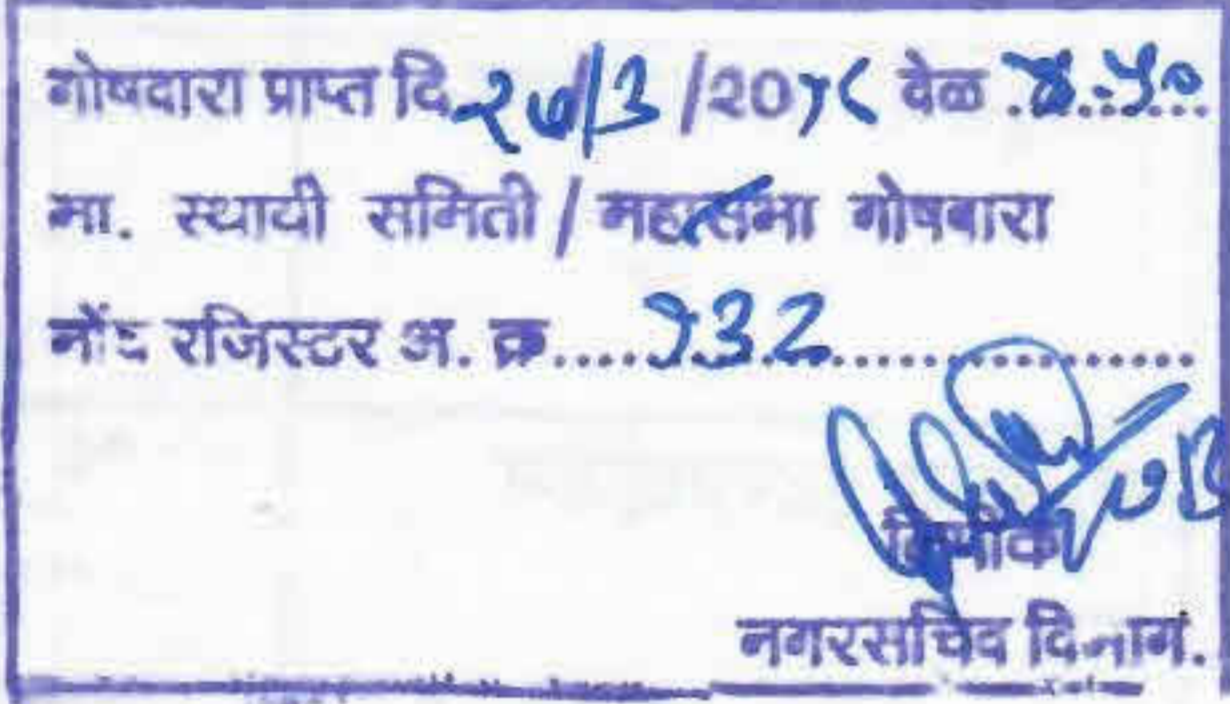 गोषवारा प्राप्त दि. २७/3 /20१८ वेळ ४.५०
मा. स्थायी समिती / महासभा गोषवारा
नोंद रजिस्टर अ. क्र....१३२....
लिपीक
नगरसचिव विभाग.